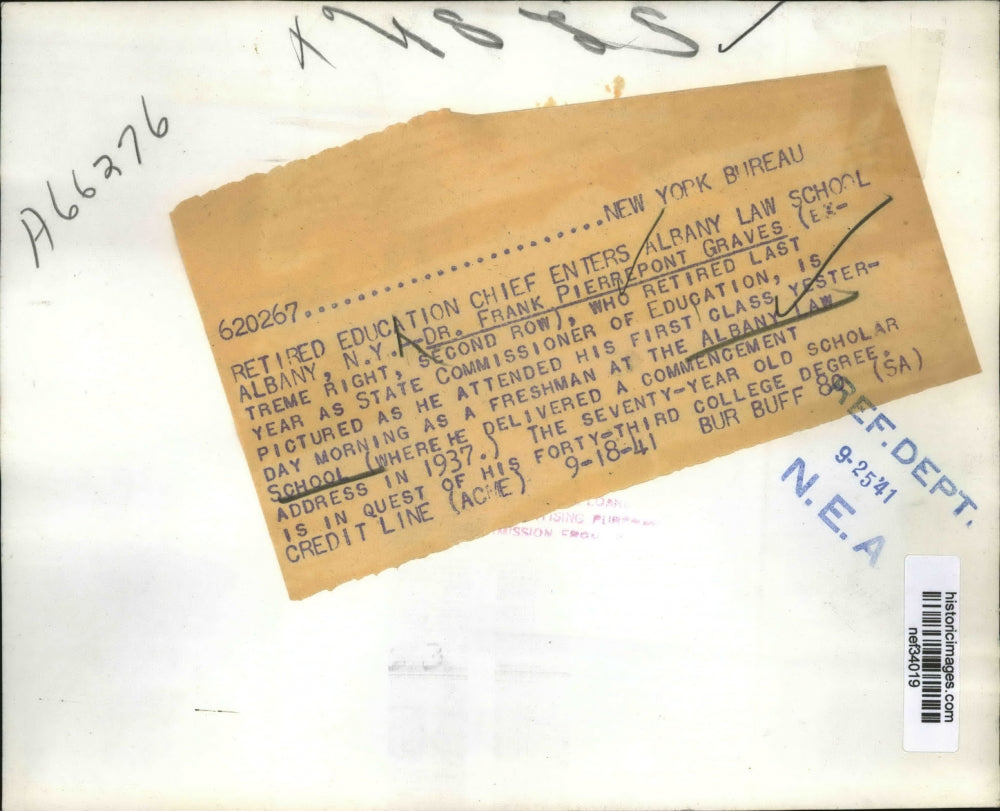 A66276
620267..............................NEW YORK BUREAU
RETIRED EDUCATION CHIEF ENTERS ALBANY LAW SCHOOL
ALBANY, N.Y.--DR. FRANK PIERREPONT GRAVES (EX-
TREME RIGHT, SECOND ROW), WHO RETIRED LAST
YEAR AS STATE COMMISSIONER OF EDUCATION, IS
PICTURED AS HE ATTENDED HIS FIRST CLASS YESTER-
DAY MORNING AS A FRESHMAN AT THE ALBANY LAW
SCHOOL (WHERE HE DELIVERED A COMMENCEMENT
ADDRESS IN 1937.) THE SEVENTY-YEAR OLD SCHOLAR
IS IN QUEST OF HIS FORTY-THIRD COLLEGE DEGREE.
CREDIT LINE (ACME) 9-18-41 BUR BUFF (SA)
REF. DEPT.
9-25'41
N.E.A
MISSION FROM
historicimages.com
nef34019